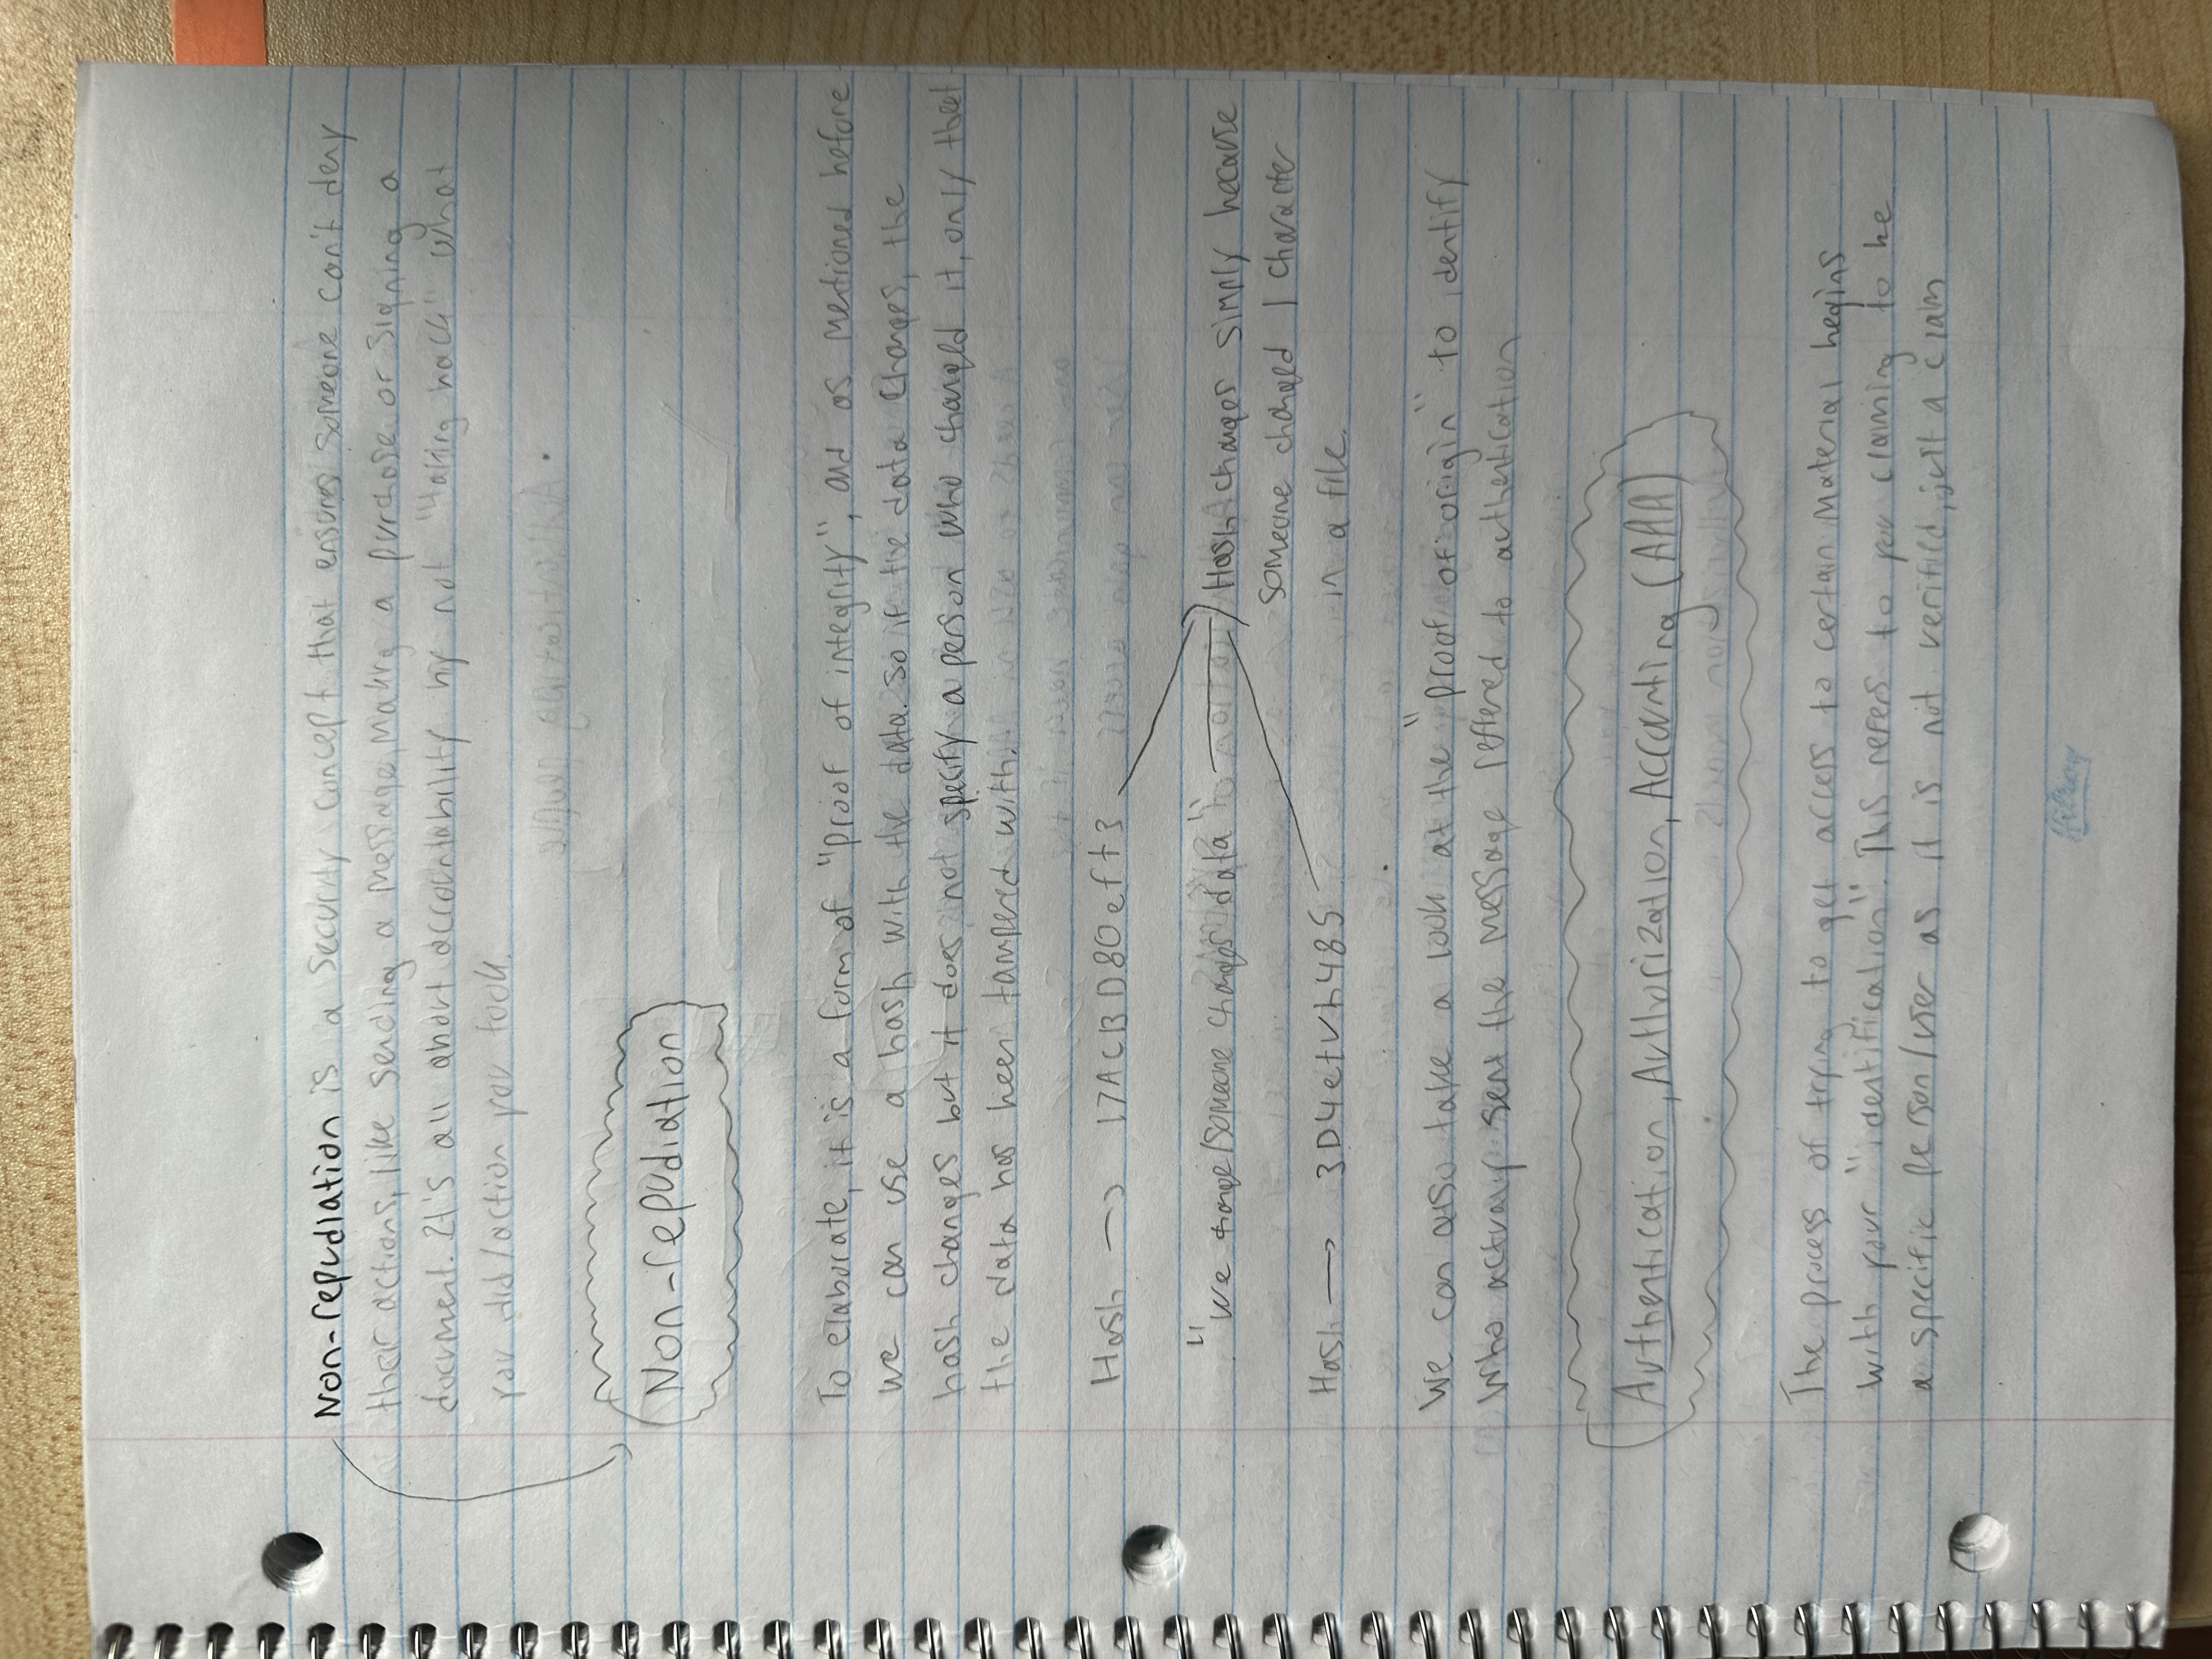 Non-repudiation is a security concept that ensures someone can't deny
their actions, like sending a message, making a purchase or signing a
document. It's all about accountability by not "taking back" what
you did/action you took.
Non-repudiation
To elaborate, it is a form of "proof of integrity", and as mentioned before
we can use a hash with the data. so if the data changes, the
hash changes but it does not specify a person who changed it, only that
the data has been tampered with.
Hash → 17ACBD80eft3
"We change/someone changes data"
Hash changes simply because
someone changed 1 character
in a file.
Hash → 3D4etvh485
We can also take a look at the "proof of origin" to identify
who actually sent the message reffered to authentication
Authentication, Authorization, Accounting (AAA)
The process of trying to get access to certain material begins
with your "identification". This refers to you claiming to be
a specific person/user as it is not verified, just a claim
Hilroy